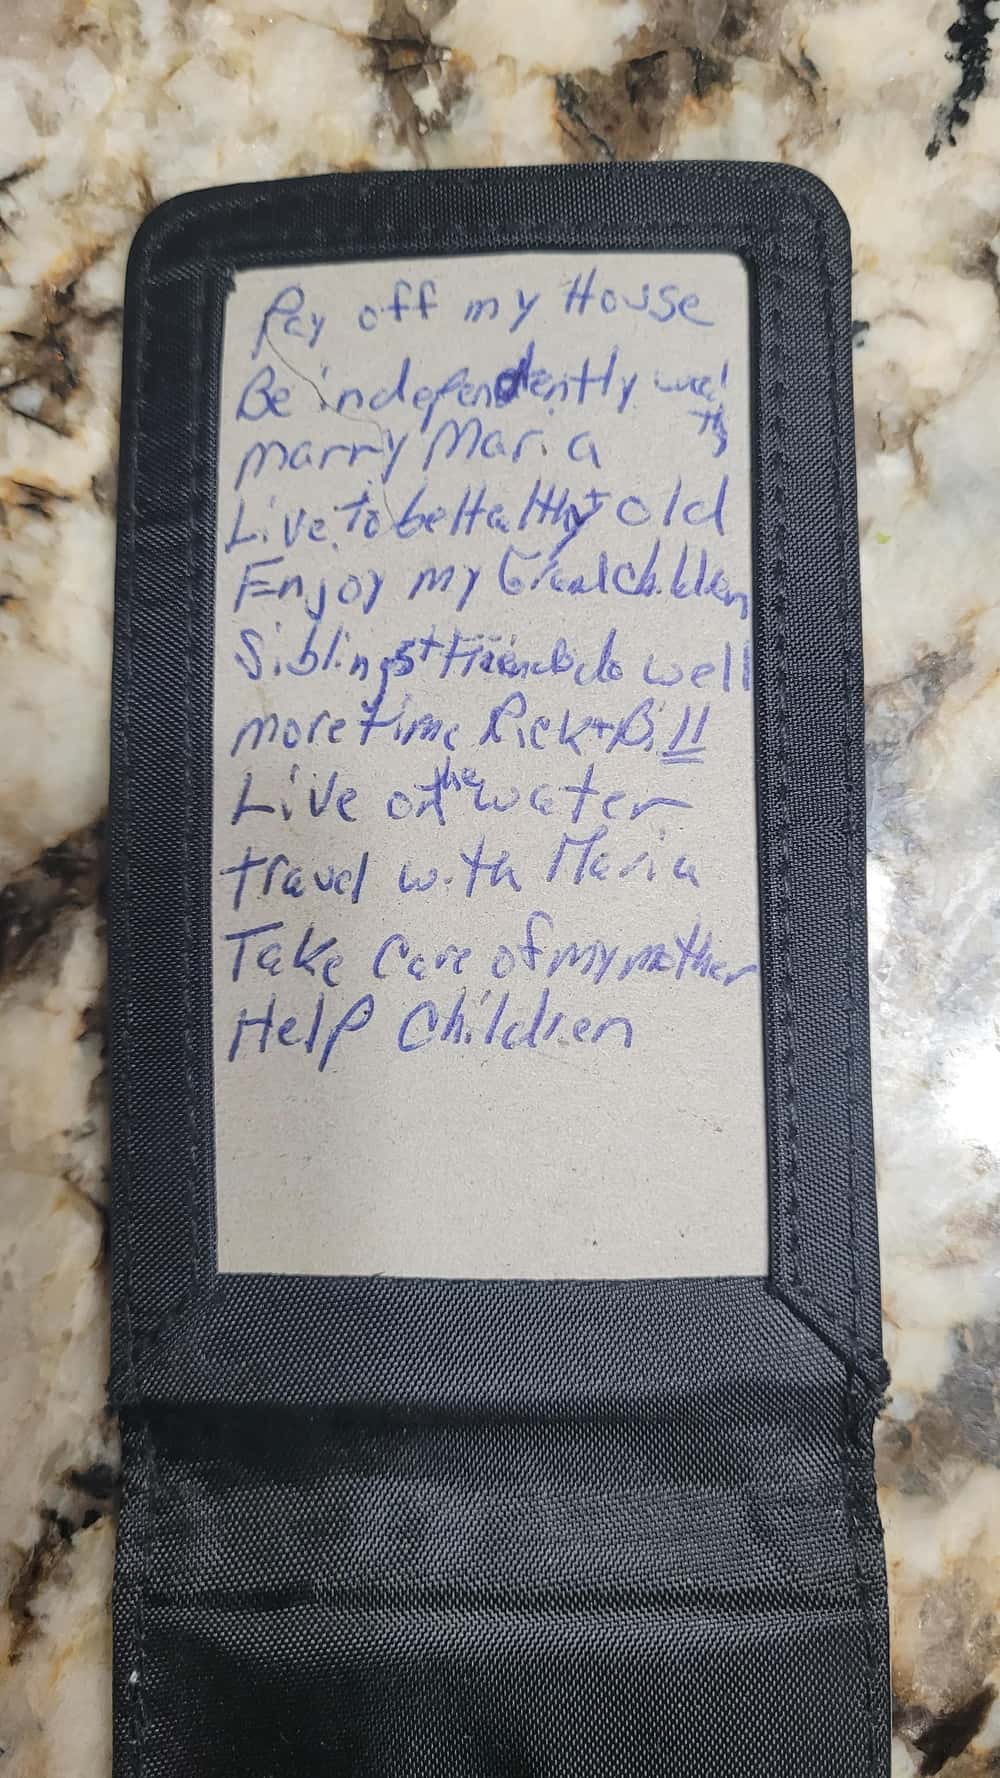 Pay off my House
Be independently wealthy
marry Maria
Live to be Healthy + old
Enjoy my Grandchildren
Siblings + Friends do well
more time Rick + Bill
Live on the water
travel with Maria
Take Care of my mother
Help Children